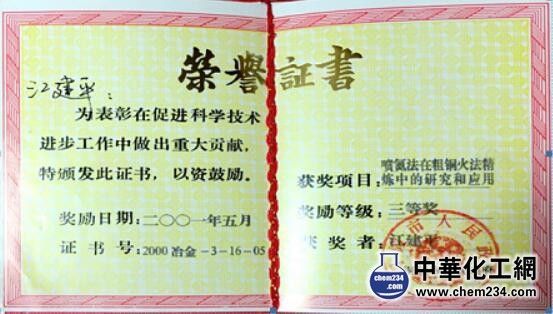 荣誉証書
江建平:
为表彰在促进科学技术
进步工作中做出重大贡献,
特颁发此证书,以资鼓励。
奖励日期:二〇〇一年五月
证书号:2000冶金-3-16-05
获奖项目:喷氮法在粗铜火法精
炼中的研究和应用
奖励等级:三等奖
获奖者:江建平
市人民
中華化工網
www.chem234.com